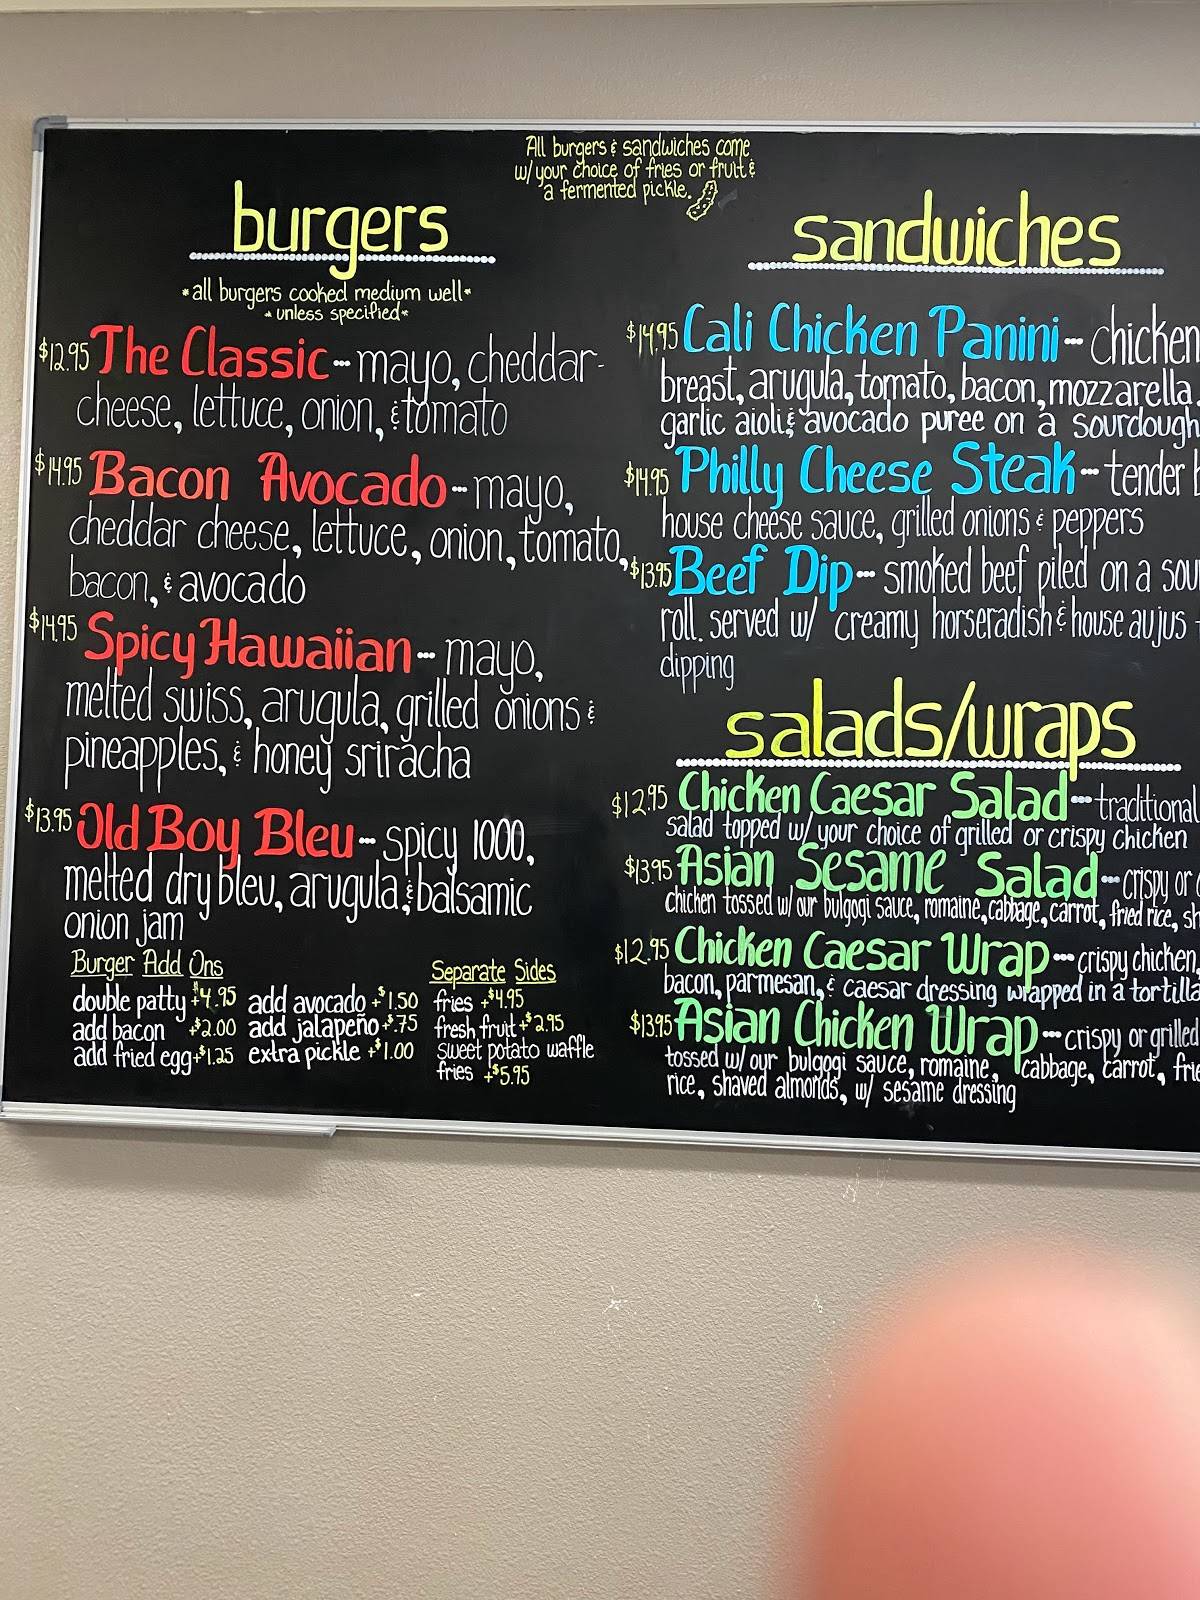 All burgers & sandwiches come
w/ your choice of fries or fruit &
a fermented pickle.
burgers
*all burgers cooked medium well*
*unless specified*
$12.95 The Classic -- mayo, cheddar-
cheese, lettuce, onion, & tomato
$14.95 Bacon Avocado -- mayo,
cheddar cheese, lettuce, onion, tomato,
bacon, & avocado
$14.95 Spicy Hawaiian -- mayo,
melted swiss, arugula, grilled onions &
pineapples, & honey sriracha
$13.95 Old Boy Bleu -- spicy 1000,
melted dry bleu, arugula, & balsamic
onion jam
Burger Add Ons
double patty +$4.95 add avocado +$1.50
add bacon +$2.00 add jalapeño +$.75
add fried egg +$1.25 extra pickle +$1.00
Separate Sides
fries +$4.95
fresh fruit +$2.95
sweet potato waffle
fries +$5.95
sandwiches
$14.95 Cali Chicken Panini -- chicken
breast, arugula, tomato, bacon, mozzarella,
garlic aioli & avocado puree on a sourdough
$14.95 Philly Cheese Steak -- tender
house cheese sauce, grilled onions & peppers
$13.95 Beef Dip -- smoked beef piled on a sou
roll. served w/ creamy horseradish & house aujus
dipping
salads/wraps
$12.95 Chicken Caesar Salad -- traditional
salad topped w/ your choice of grilled or crispy chicken
$13.95 Asian Sesame Salad -- crispy or
chicken tossed w/ our bulgogi sauce, romaine, cabbage, carrot, fried rice, sh
$12.95 Chicken Caesar Wrap -- crispy chicken,
bacon, parmesan, & caesar dressing wrapped in a tortilla
$13.95 Asian Chicken Wrap -- crispy or grilled
tossed w/ our bulgogi sauce, romaine, cabbage, carrot, frie
rice, shaved almonds, w/ sesame dressing